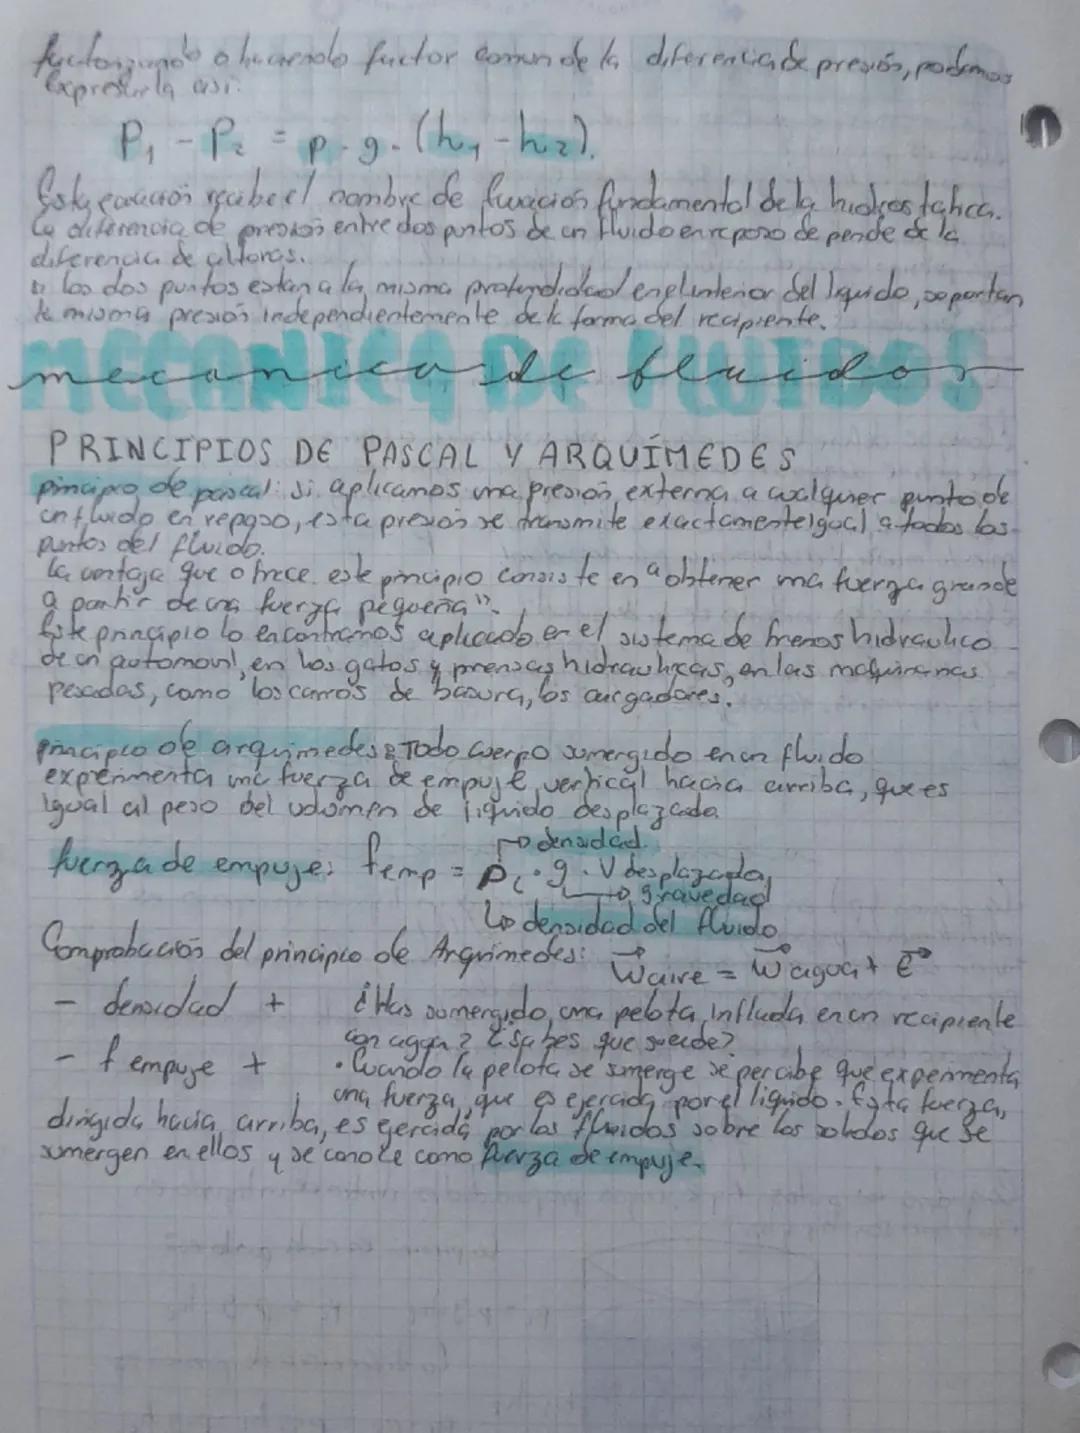 factorizando o haciendo factor comun de la diferencia de presión, podemos
expresarla asi:
P₁ - P₂ = p . g . (h₁ - h₂).
Esta ecuación recibe el nombre de Ecuación fundamental de la hidrostatica.
La diferencia de presión entre dos puntos de un fluido en reposo depende de la
diferencia de alturas.
si los dos puntos estan a la misma profundidad en el interior del liquido, soportan
la misma presión independientemente de la forma del recipiente.
MECANICA DE FLUIDOS
mecanica de fluidos
PRINCIPIOS DE PASCAL Y ARQUÍMEDES
principio de pascal: si aplicamos una presión externa a cualquier punto de
un fluido en reposo, esta presion se transmite exactamente igual a todos los
puntos del fluido.
la ventaja que ofrece este principio consiste en "obtener una fuerza grande
a partir de una fuerza pequeña".
Este principio lo encontramos aplicado en el sistema de frenos hidraulico
de un automovil, en los gatos y prensas hidraulicas, en las maquinarias
pesadas, como los carros de basura, los cargadores.
principio de arquimedes: Todo cuerpo sumergido en un fluido
experimenta una fuerza de empuje vertical hacia arriba, que es
igual al peso del volumen de liquido desplazado
→ densidad.
fuerza de empuje: femp = ρL . g . V desplazado,
→ gravedad
↳ densidad del fluido
Comprobación del principio de Arquimedes: W⃗aire = W⃗agua + E⃗
- densidad + ¿Has sumergido una pelota inflada en un recipiente
con agua? ¿Sabes que sucede?
- f empuje + · Cuando la pelota se sumerge se percibe que experimenta
una fuerza, que es ejercida por el liquido. Esta fuerza,
dirigida hacia arriba, es ejercida por los fluidos sobre los solidos que se
sumergen en ellos y se conoce como fuerza de empuje.